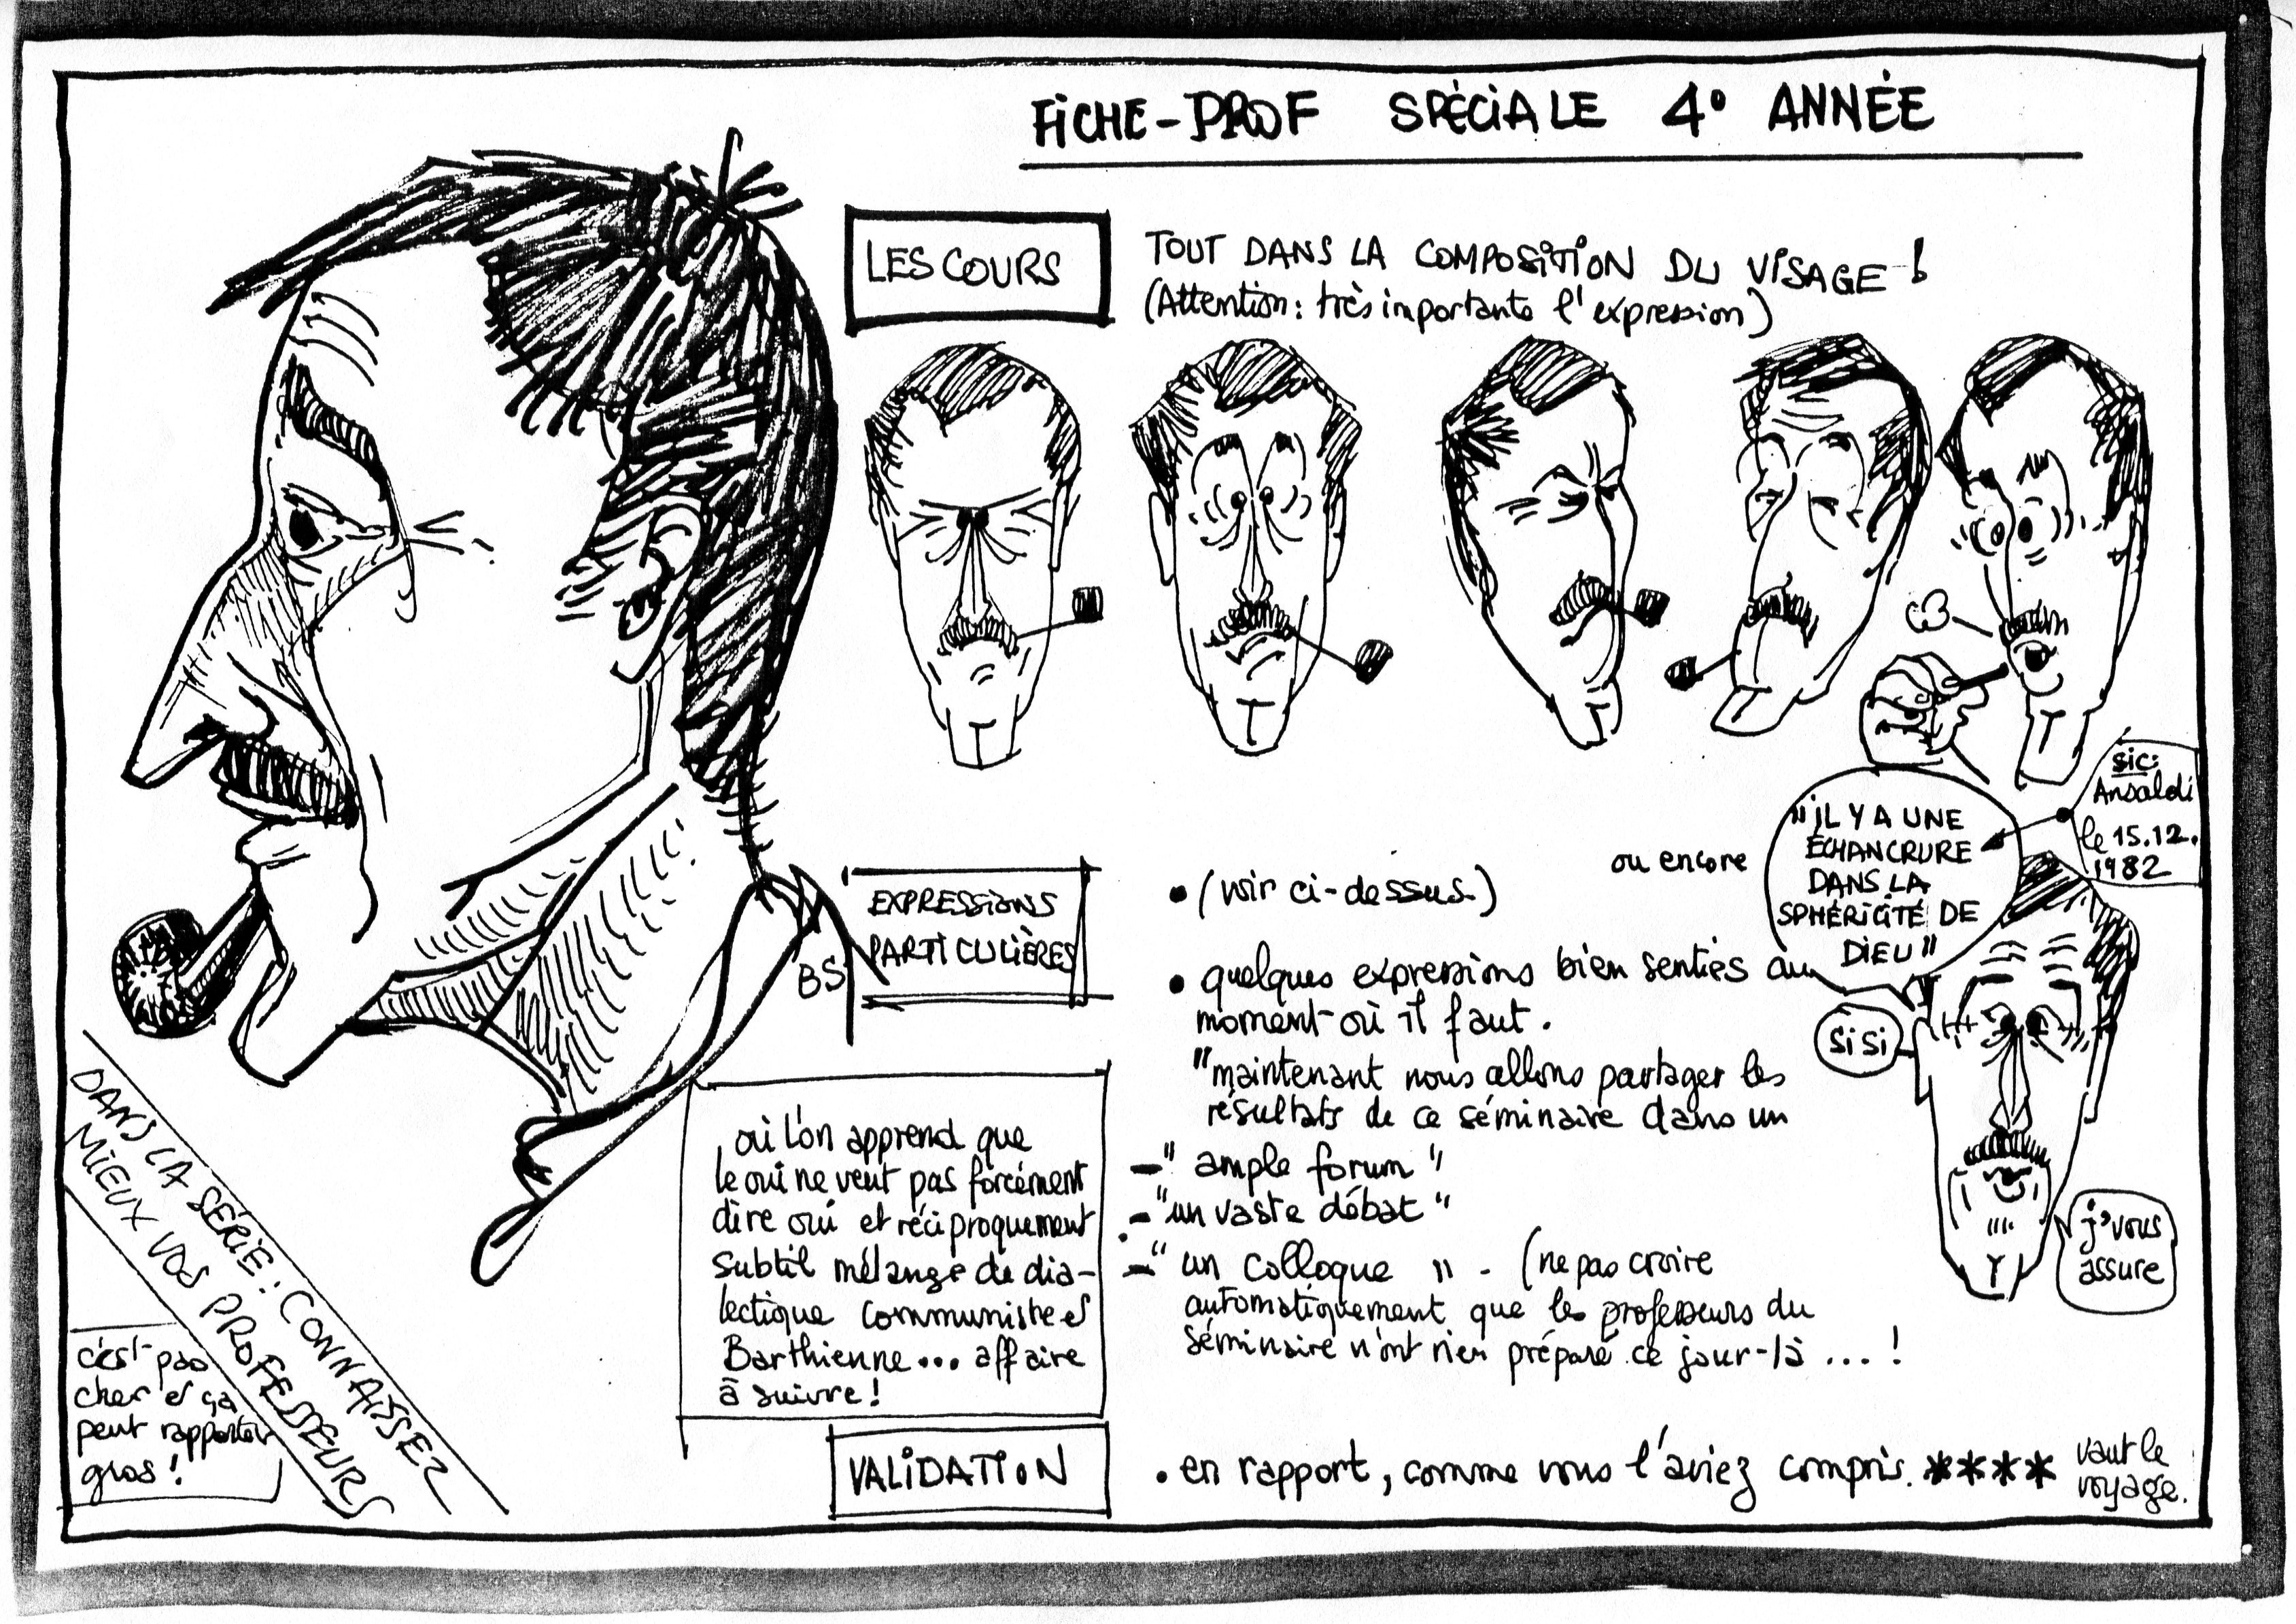 FICHE-PROF SPÉCIALE 4° ANNÉE
LES COURS
TOUT DANS LA COMPOSITION DU VISAGE !
(Attention : très importante l'expression)
EXPRESSIONS
PARTICULIÈRES
BS
• (voir ci-dessus)
ou encore
"IL Y A UNE
ÉCHANCRURE
DANS LA
SPHÉRICITÉ DE
DIEU"
sic:
Ansaldi
le 15.12.
1982
• quelques expressions bien senties au
moment où il faut.
"maintenant nous allons partager les
résultats de ce séminaire dans un
-" ample forum "
-"un vaste débat"
-" un colloque " - (ne pas croire
automatiquement que les professeurs du
séminaire n'ont rien préparé ce jour-là ... !
Si Si
j'vous
assure
où l'on apprend que
le oui ne veut pas forcément
dire oui et réciproquement
subtil mélange de dia-
lectique communiste et
Barthienne... affaire
à suivre !
DANS LA SÉRIE : CONNAISSEZ
MIEUX VOS PROFESSEURS
c'est pas
cher et ça
peut rapporter
gros !
VALIDATION
• en rapport, comme vous l'aviez compris. **** vaut le
voyage.